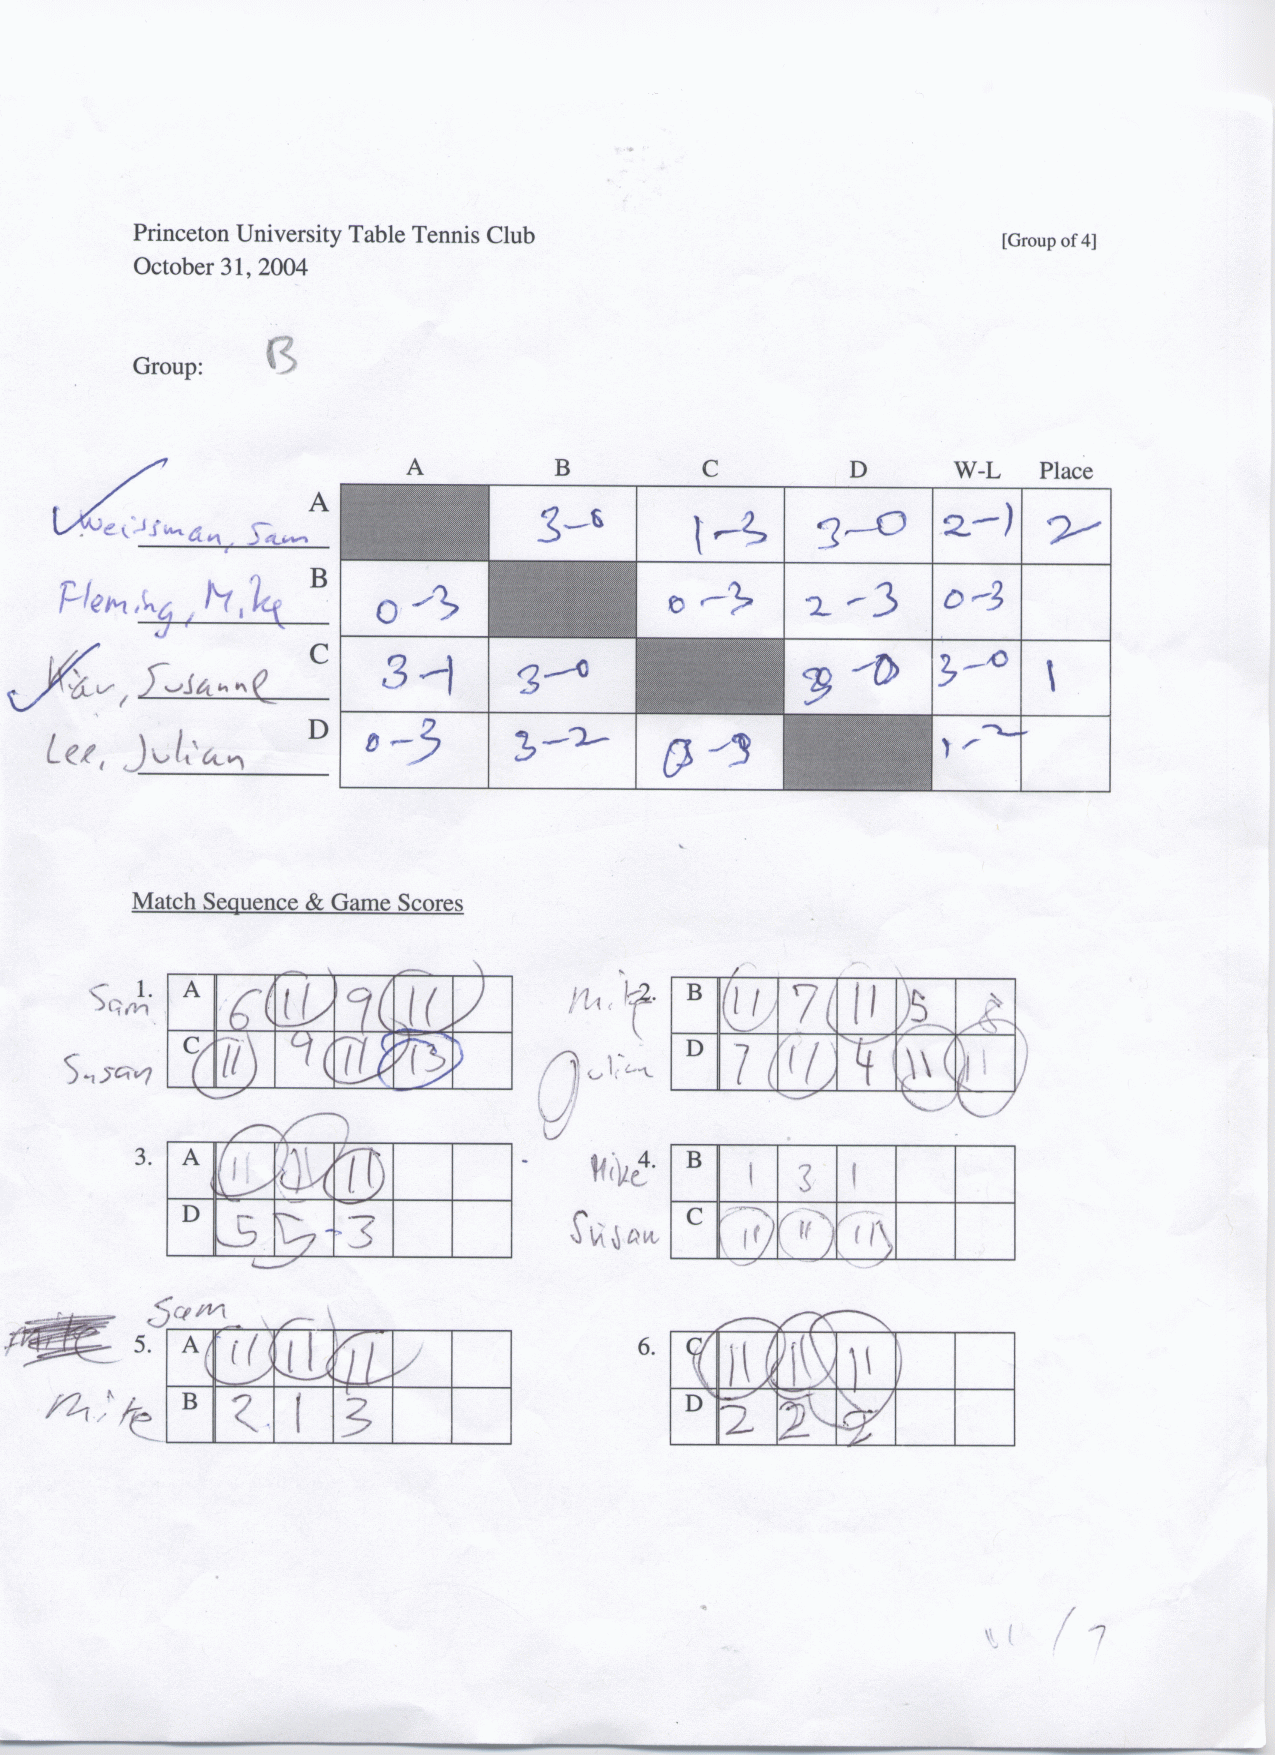 Princeton University Table Tennis Club [Group of 4]
October 31, 2004
Group: B
A B C D W-L Place
A Weissman, Sam 3-0 1-3 3-0 2-1 2
B Fleming, Mike 0-3 0-3 2-3 0-3
C Susanne 3-1 3-0 3-0 3-0 1
D Lee, Julian 0-3 3-2 0-3 1-2
Match Sequence & Game Scores
Sam 1. A 6 11 9 11
Susan C 11 9 11 13
Mike 2. B 11 7 11 5 8
Julian D 7 11 4 11 11
3. A 11 11 11
D 5 5 3
Mike 4. B 1 3 1
Susan C 11 11 11
Sam
5. A 11 11 11
Mike B 2 1 3
6. C 11 11 11
D 2 2 2